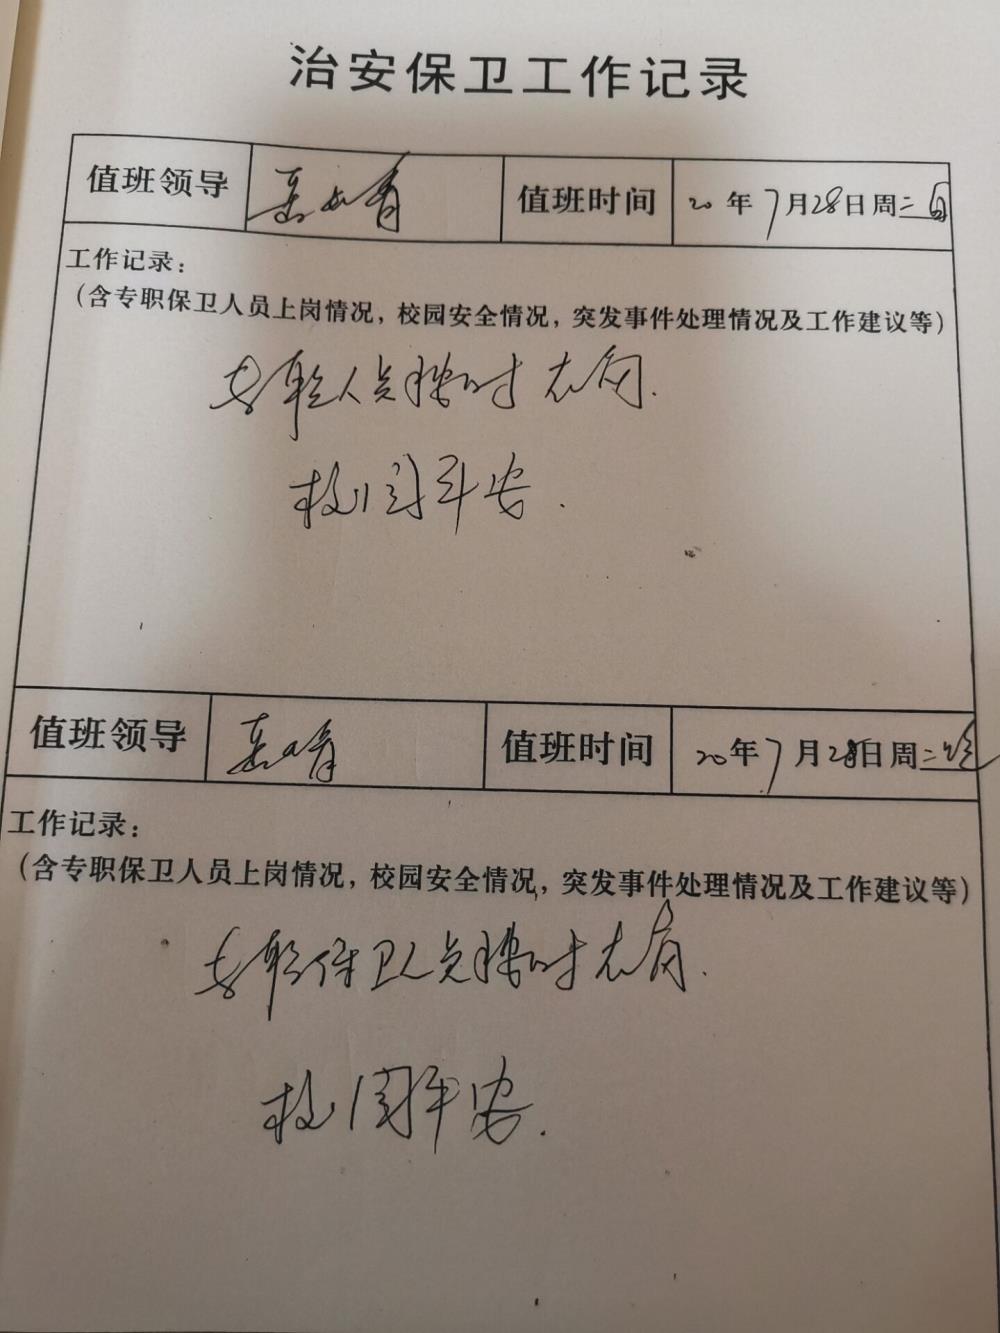 治安保卫工作记录
值班领导 值班时间 20年7月28日周二白
工作记录：
（含专职保卫人员上岗情况，校园安全情况，突发事件处理情况及工作建议等）
专职人员按时在岗.
校园平安.
值班领导 值班时间 20年7月28日周二晚
工作记录：
（含专职保卫人员上岗情况，校园安全情况，突发事件处理情况及工作建议等）
专职保卫人员按时在岗.
校园平安.